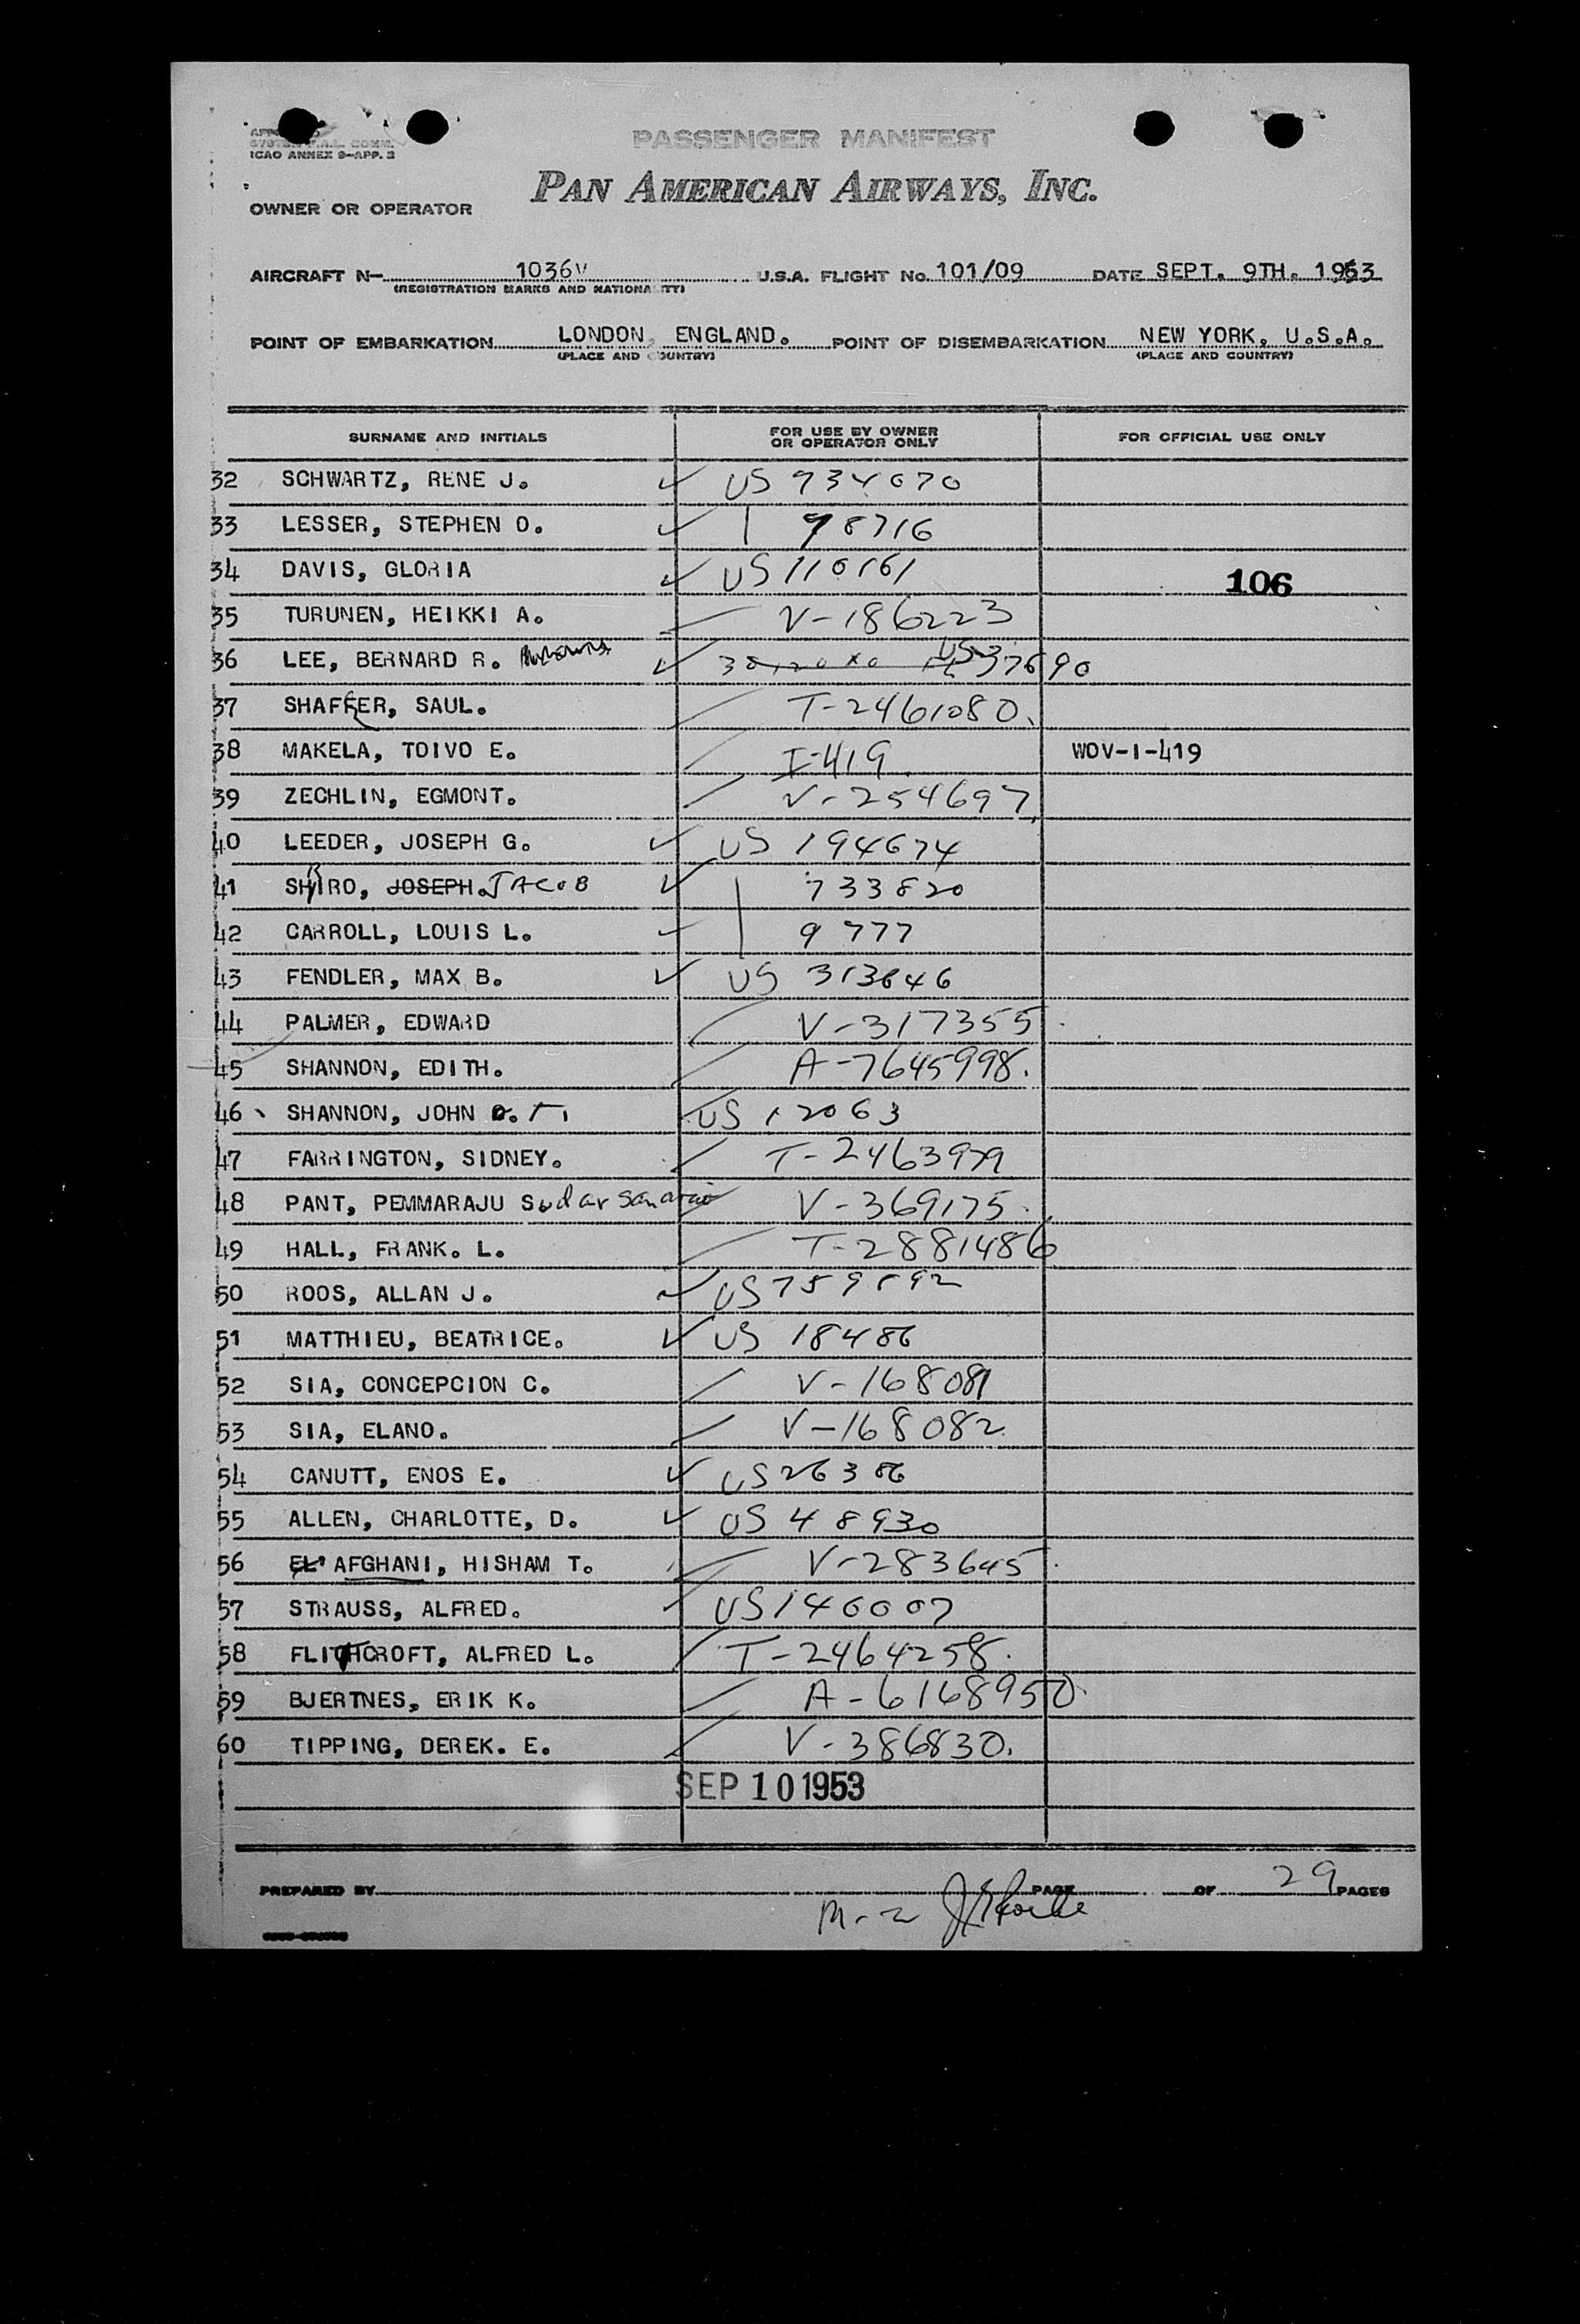 PASSENGER MANIFEST
ICAO ANNEX 9-APP. 3
PAN AMERICAN AIRWAYS, INC.
OWNER OR OPERATOR
AIRCRAFT N- 1036V U.S.A. FLIGHT No. 101/09 DATE SEPT. 9TH. 1953
(REGISTRATION MARKS AND NATIONALITY)
POINT OF EMBARKATION LONDON, ENGLAND. POINT OF DISEMBARKATION NEW YORK, U.S.A.
(PLACE AND COUNTRY) (PLACE AND COUNTRY)
SURNAME AND INITIALS FOR USE BY OWNER OR OPERATOR ONLY FOR OFFICIAL USE ONLY
32 SCHWARTZ, RENE J. ✓ US 934070
33 LESSER, STEPHEN O. ✓ | 98716
34 DAVIS, GLORIA ✓ US 110161 106
35 TURUNEN, HEIKKI A. V-186223
36 LEE, BERNARD R. ✓ US 37690
37 SHAFFER, SAUL. T-2461080.
38 MAKELA, TOIVO E. I-419 WOV-I-419
39 ZECHLIN, EGMONT. V-254697
40 LEEDER, JOSEPH G. ✓ US 194674
41 SHIRO, JOSEPH. JACOB ✓ 733820
42 CARROLL, LOUIS L. ✓ 9777
43 FENDLER, MAX B. ✓ US 313646
44 PALMER, EDWARD V-317355
45 SHANNON, EDITH. A-7645998.
46 SHANNON, JOHN US 12063
47 FARRINGTON, SIDNEY. T-2463979
48 PANT, PEMMARAJU Sudarsanarao V-369175.
49 HALL, FRANK. L. T-2881486
50 ROOS, ALLAN J. ✓ US 759592
51 MATTHIEU, BEATRICE. ✓ US 18486
52 SIA, CONCEPCION C. V-168081
53 SIA, ELANO. V-168082
54 CANUTT, ENOS E. ✓ US 26386
55 ALLEN, CHARLOTTE, D. ✓ US 48930
56 EL' AFGHANI, HISHAM T. V-283645
57 STRAUSS, ALFRED. ✓ US 140007
58 FLITCROFT, ALFRED L. T-2464258.
59 BJERTNES, ERIK K. A-6168950
60 TIPPING, DEREK. E. V-386830.
SEP 10 1953
PREPARED BY PAGE OF 29 PAGES
M-2